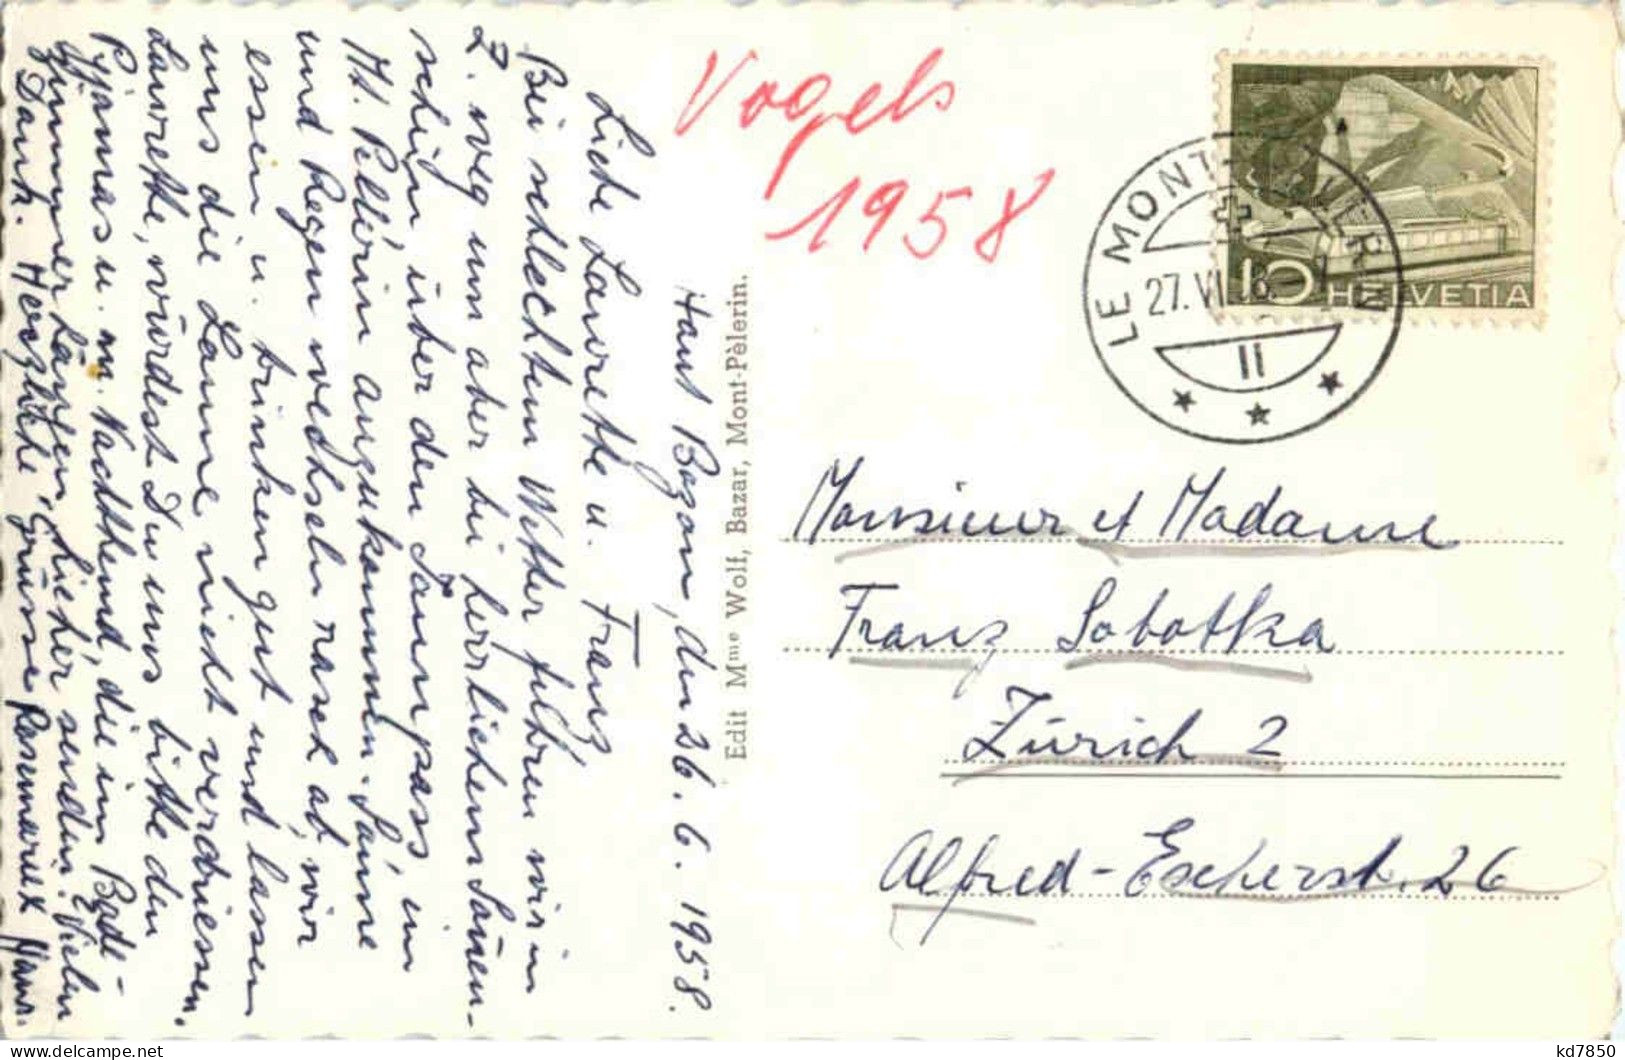 Haut Bazon, den 26. 6. 1958.
Liebe Laurette u. Franz,
Bei schlechtem Wetter fuhren wir in
Z. weg um aber bei herrlichem Sonnen-
schein über den Jaunpass, im
Mt. Pellérin anzukommen. Sonne
und Regen wechseln rasch ab, wir
essen u. trinken gut und lassen
uns die Laune nicht verdriessen.
Laurette, würdest Du uns bitte den
Pyjamas u. m. Nachthemd, die im Bade-
zimmer hängen, hieher senden. Vielen
Dank. Herzliche Grüsse Rosmarie x Hans.
Edit Mme Wolf, Bazar, Mont-Pèlerin.
Vogels
1958
LE MONT-PÈLERIN
27. VI. 58.
II
10 HELVETIA
Monsieur et Madame
Franz Sobotka
Zürich 2
Alfred-Escherst. 26
kd7850